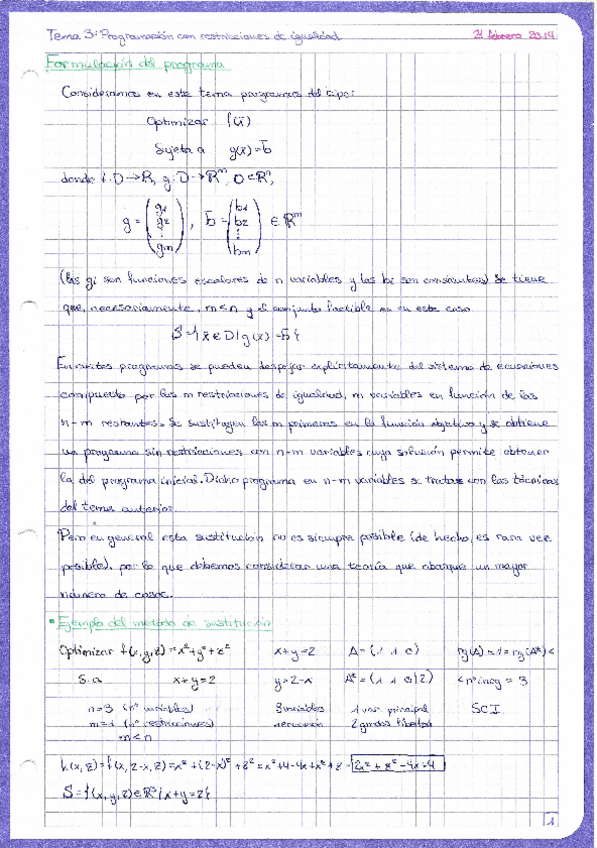 Tema 3: Programación con restricciones de igualdad. 21 febrero 2014
Formulación del programa
Consideramos en este tema programas del tipo:
Optimizar f(x̄)
Sujeta a g(x̄) = b̄
donde f: D→R, g: D→Rᵐ, D⊂Rⁿ,
g = (g1 g2 ⋮ gm), b̄ = (b1 b2 ⋮ bm) ∈ Rᵐ
(las gi son funciones escalares de n variables y las bi son constantes) Se tiene
que, necesariamente, m<n y el conjunto factible es en este caso
S = {x̄ ∈ D / g(x) = b̄}
En ciertos programas se pueden despejar explícitamente del sistema de ecuaciones
compuesto por las m restricciones de igualdad, m variables en función de las
n-m restantes. Se sustituyen las m primeras en la función objetivo y se obtiene
un programa sin restricciones con n-m variables cuya solución permite obtener
la del programa inicial. Dicho programa en n-m variables se tratan con las técnicas
del tema anterior.
Pero en general esta sustitución no es siempre posible (de hecho, es rara vez
posible), por lo que debemos considerar una teoría que abarque un mayor
número de casos.
• Ejemplo del método de sustitución
Optimizar f(x,y,z) = x²+y²+z² x+y=2 A=(1 1 0) rg(A)=1=rg(A*)<
s.a x+y=2 y=2-x A*=(1 1 0|2) <nº incg = 3
n=3 (nº variables) 3 variables 1 var. principal SCI
m=1 (nº restricciones) 1 ecuación 2 grados libertad
m<n
h(x,z)=f(x,2-x,z)=x²+(2-x)²+z²=x²+4-4x+x²+z=2x²+z²-4x+4
S={(x,y,z)∈R³/x+y=2}
1